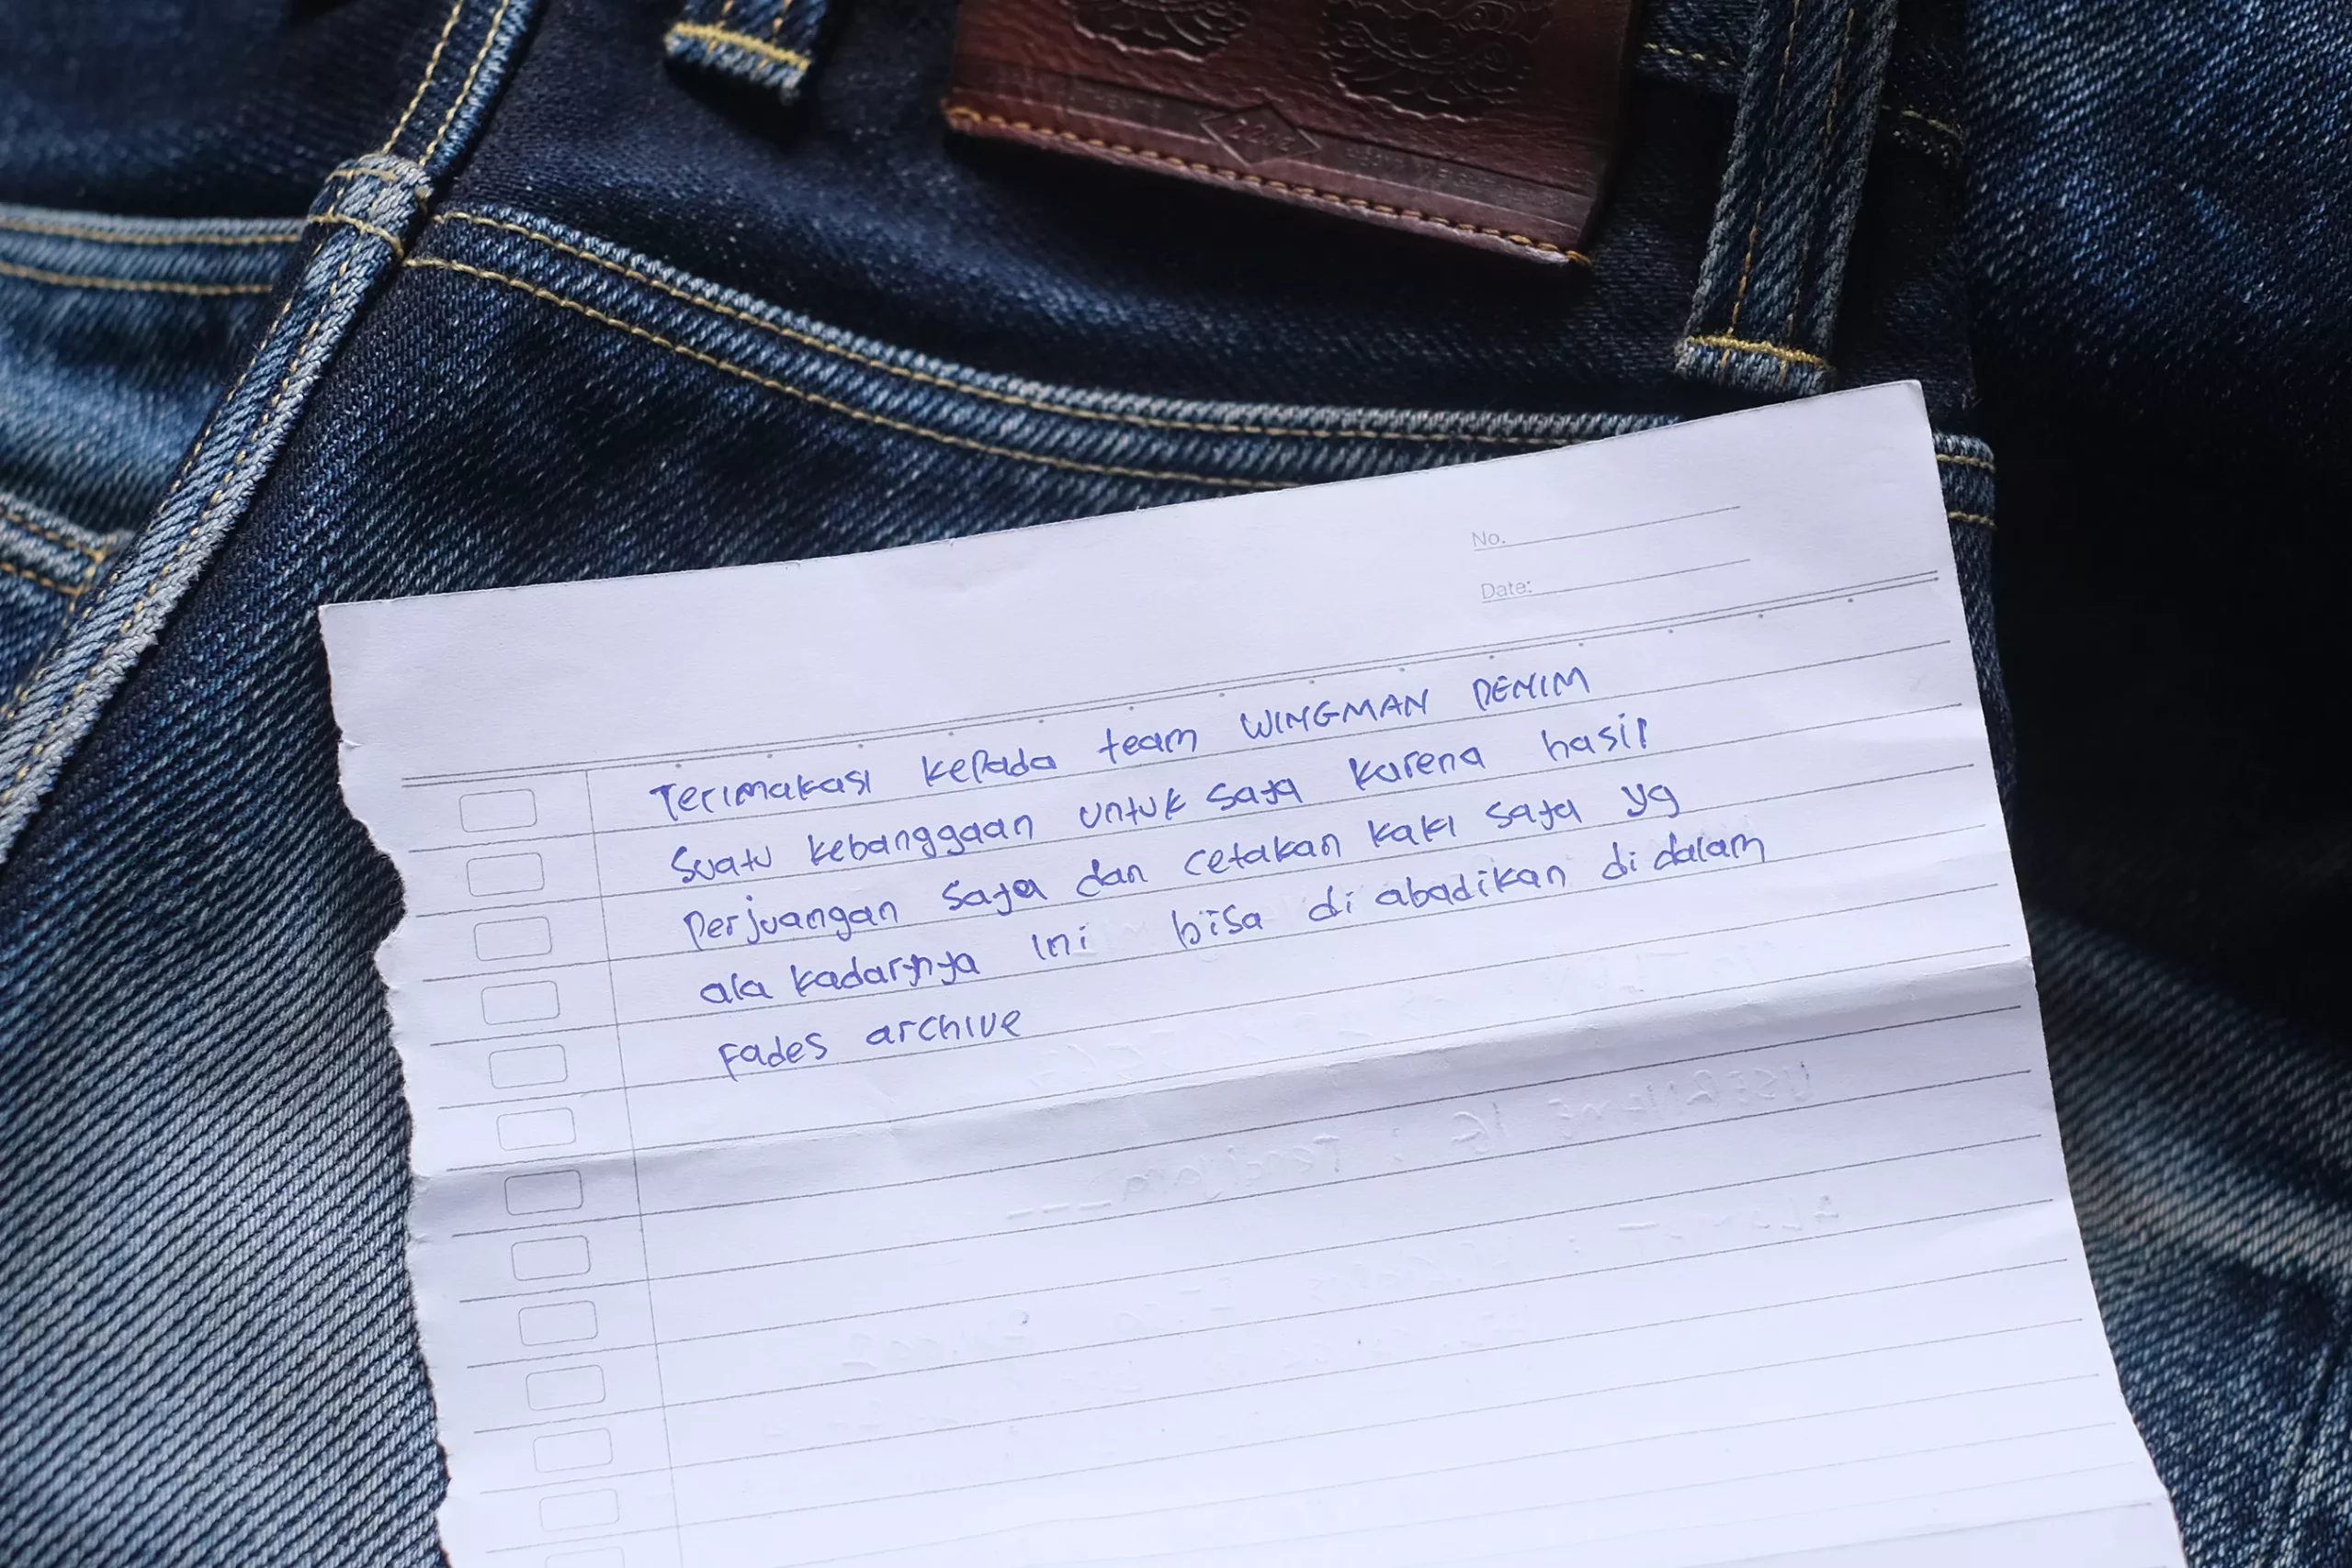 No.
Date:
Terimakasi kepada team WINGMAN DENIM
suatu kebanggaan untuk saya karena hasil
perjuangan saya dan cetakan kaki saya yg
ala kadarnya ini bisa di abadikan di dalam
Fades archive